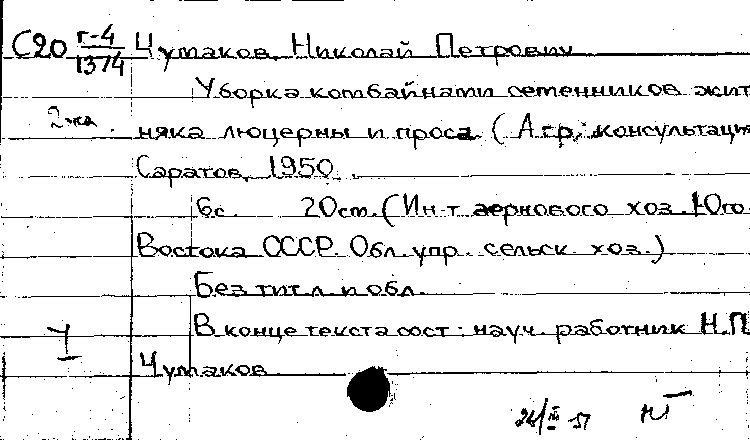 С20 Г-4/1374 Чумаков, Николай Петрович
Уборка комбайнами семенников жит
2 экз. няка люцерны и проса. (Агр. консультация
Саратов, 1950.
6с. 20см. (Ин-т зернового хоз. Юго-
Востока СССР. Обл. упр. сельск. хоз.)
Без тит. л. и обл.
В конце текста сост: науч. работник Н.П
Ч Чумаков
24/III 51